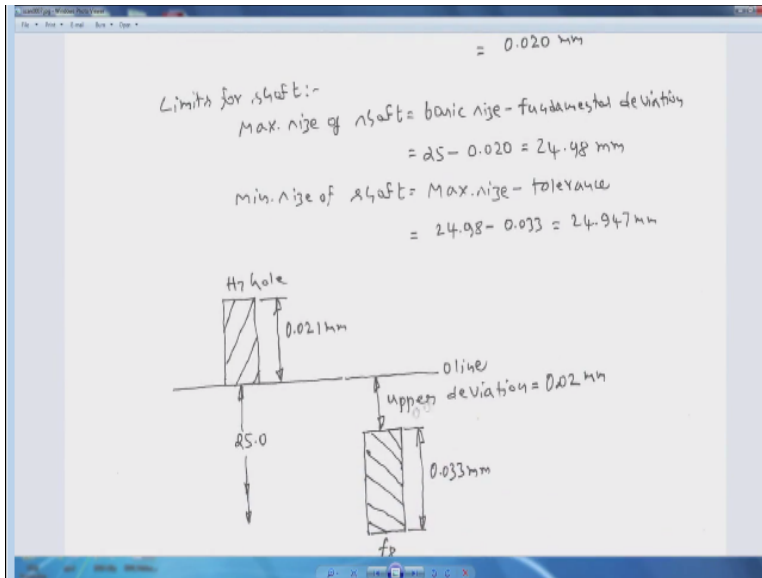 = 0.020 mm
Limits for shaft:-
Max. size of shaft = basic size - fundamental deviation
= 25 - 0.020 = 24.98 mm
Min. size of shaft = Max. size - tolerance
= 24.98 - 0.033 = 24.947 mm
H7 hole
0.021 mm
0 line
upper deviation = 0.02 mm
25.0
0.033 mm
f8